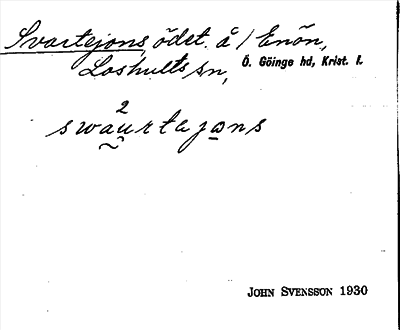 Svartejons, ödet. å / Enön,
Loshults sn, Ö. Göinge hd, Krist. l.
2
swau̯rtejo̲ns
JOHN SVENSSON 1930